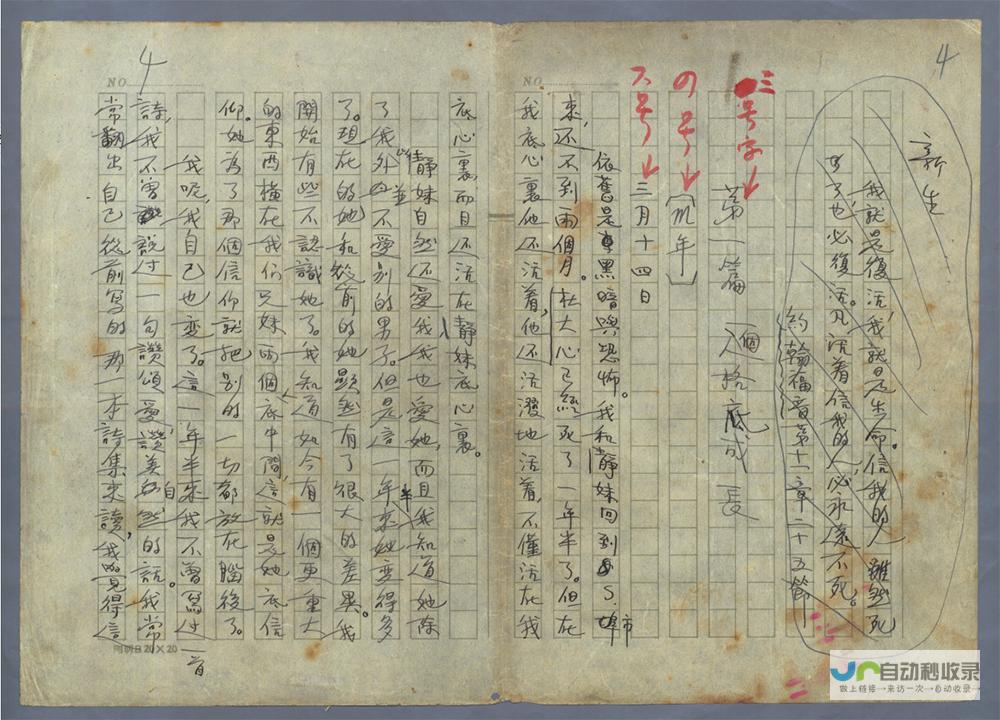 4
新生
我就是復活，我就是生命。信我的人雖然死
了也必復活。凡活着信我的人必永遠不死。
約翰福音第十一章二十五節
三号字↓
第一篇 一個人格底成長
四号↓
〔一九 年〕
六号↓
三月十四日
依舊是黑暗與恐怖。我和靜妹回到S.埠市
來，还不到兩個月。杜大心已經死了一年半了。但在
我底心裏他还活着，他还活潑地活着，不僅活在我
NO
4
底心裏而且还活在靜妹底心裏。
靜妹自然还愛我，我也愛她，而且我知道她除
了我外並不愛别的男子。但是這一年半來她变得多
了。現在的她和從前的她顯然有了很大的差異。我
開始有些不認識她了。我知道如今有一個更重大
的東西横在我们兄妹兩個人底中間，這就是她底信
仰。她為了那個信仰就把别的一切都放在腦後了。
我呢，我自己也变了。這一年半來我不曾寫过一首
詩，我不曾説过一句讚頌愛，讚美自然的話。我常
常翻出自己從前寫的那一本詩集來讀，我覺得這
NO
20×20
自动秒收录
做上链接→来访一次→自动收录→